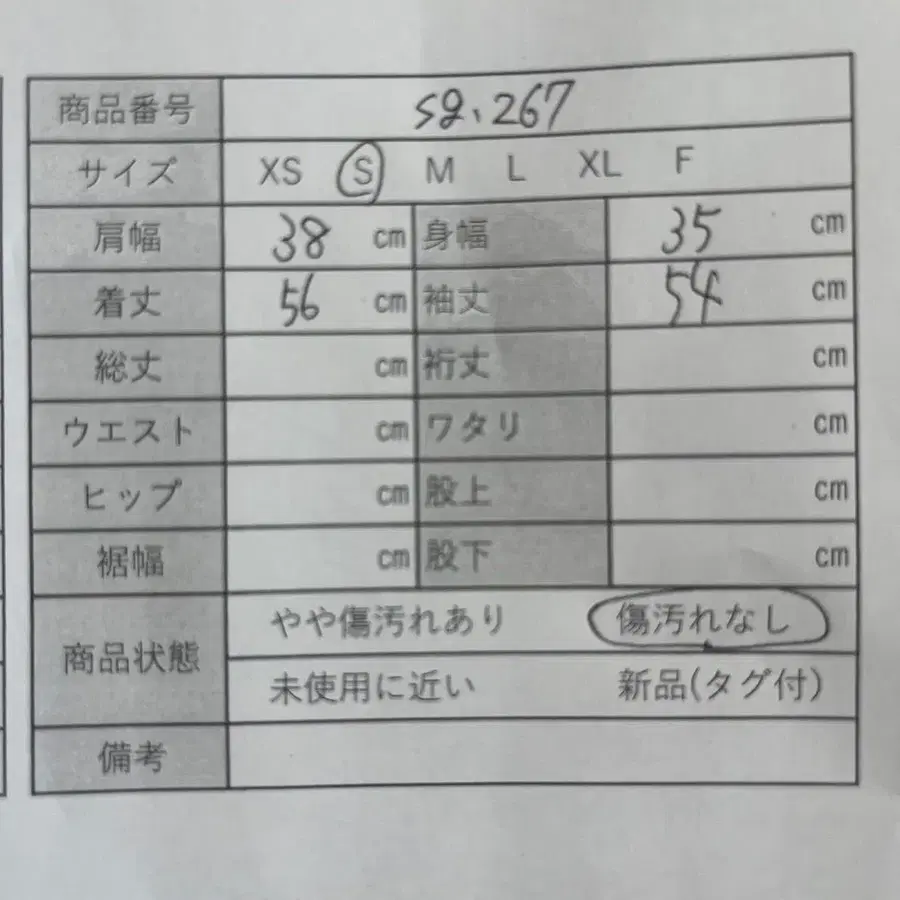 商品番号 sg.267
サイズ XS S M L XL F
肩幅 38 cm 身幅 35 cm
着丈 56 cm 袖丈 54 cm
総丈 cm 裄丈 cm
ウエスト cm ワタリ cm
ヒップ cm 股上 cm
裾幅 cm 股下 cm
商品状態 やや傷汚れあり 傷汚れなし
未使用に近い 新品(タグ付)
備考